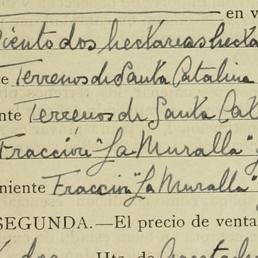 en v
Ciento dos hectareas hecta
e Terrenos de Santa Catalina
nte Terrenos de Santa Cat
Fracción "La Muralla" y
niente Fracción "La Muralla"
SEGUNDA.—El precio de venta
Hta. de